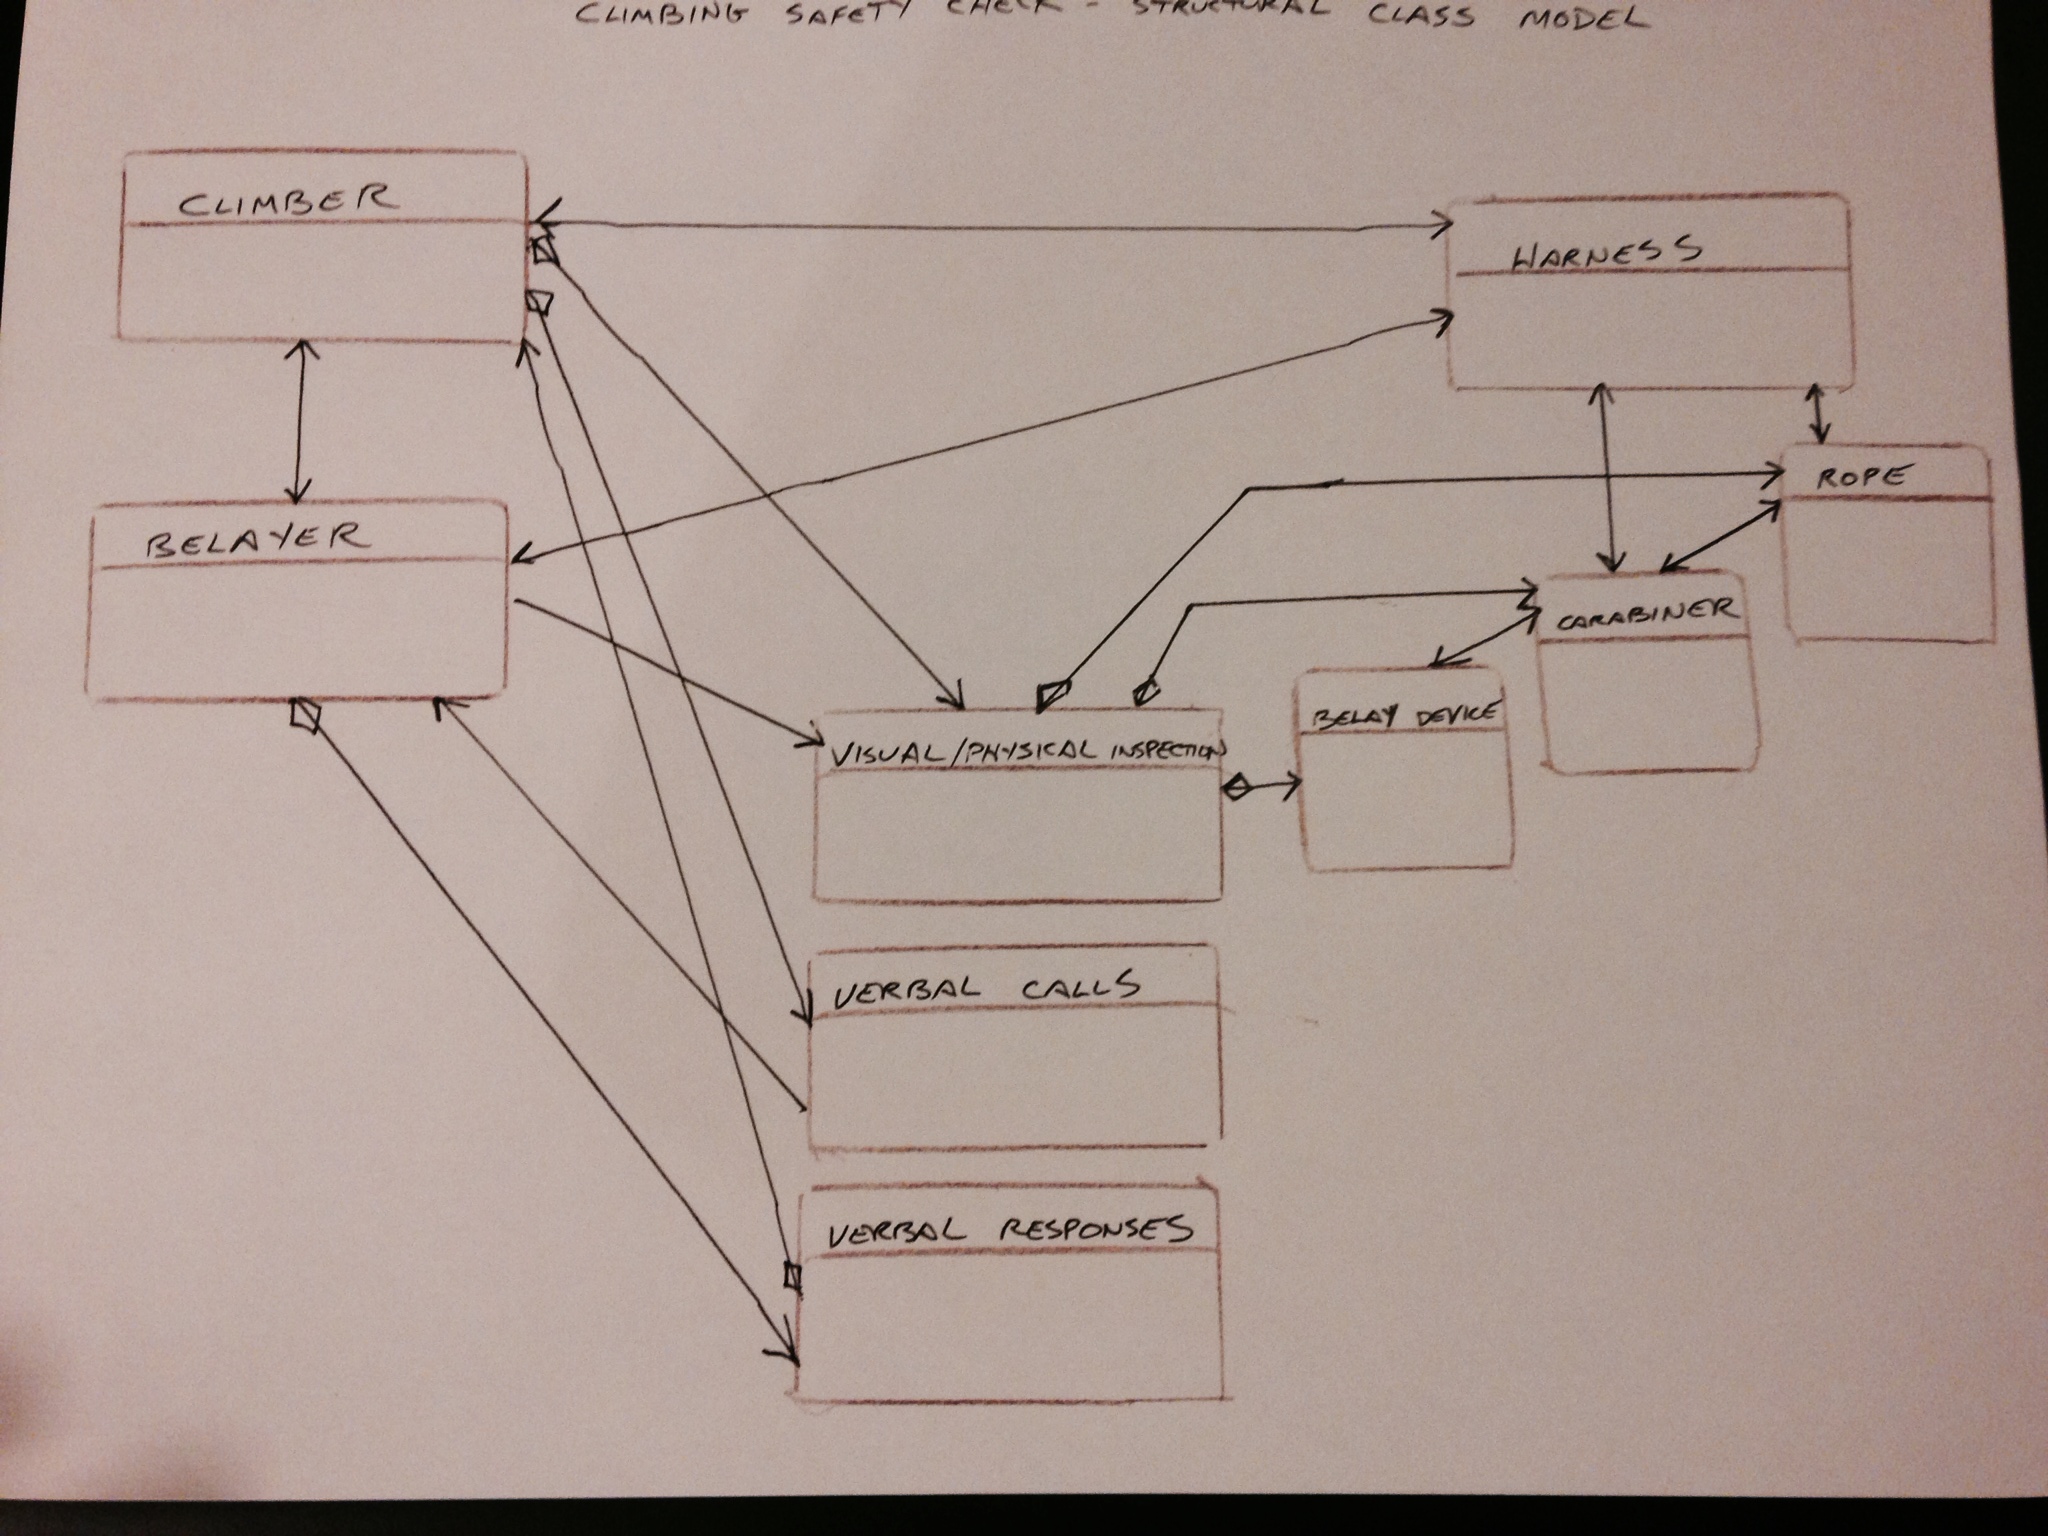 CLIMBING SAFETY CHECK - STRUCTURAL CLASS MODEL
CLIMBER
HARNESS
ROPE
BELAYER
CARABINER
BELAY DEVICE
VISUAL/PHYSICAL INSPECTION
VERBAL CALLS
VERBAL RESPONSES